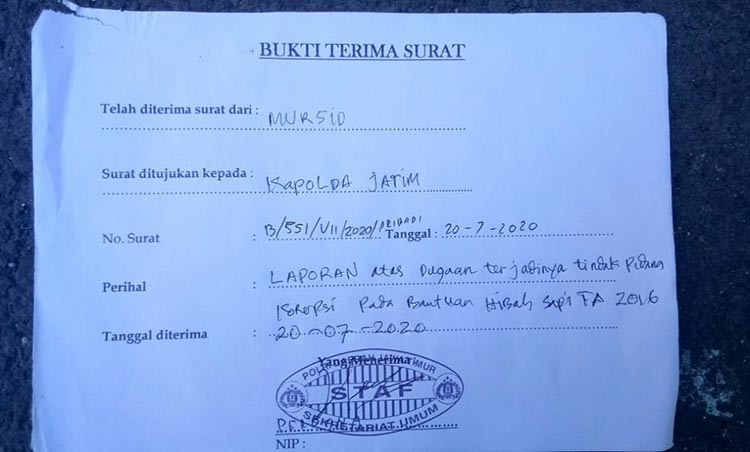 BUKTI TERIMA SURAT
Telah diterima surat dari : MURSID
Surat ditujukan kepada : KAPOLDA JATIM
No. Surat : B/551/VII/2020/PRIBADI Tanggal : 20-7-2020
Perihal : LAPORAN atas Dugaan terjadinya tindak pidana
Korupsi pada Bantuan Hibah Sapi TA 2016
Tanggal diterima : 20-07-2020
Yang Menerima
STAF
SEKRETARIAT UMUM
NIP :